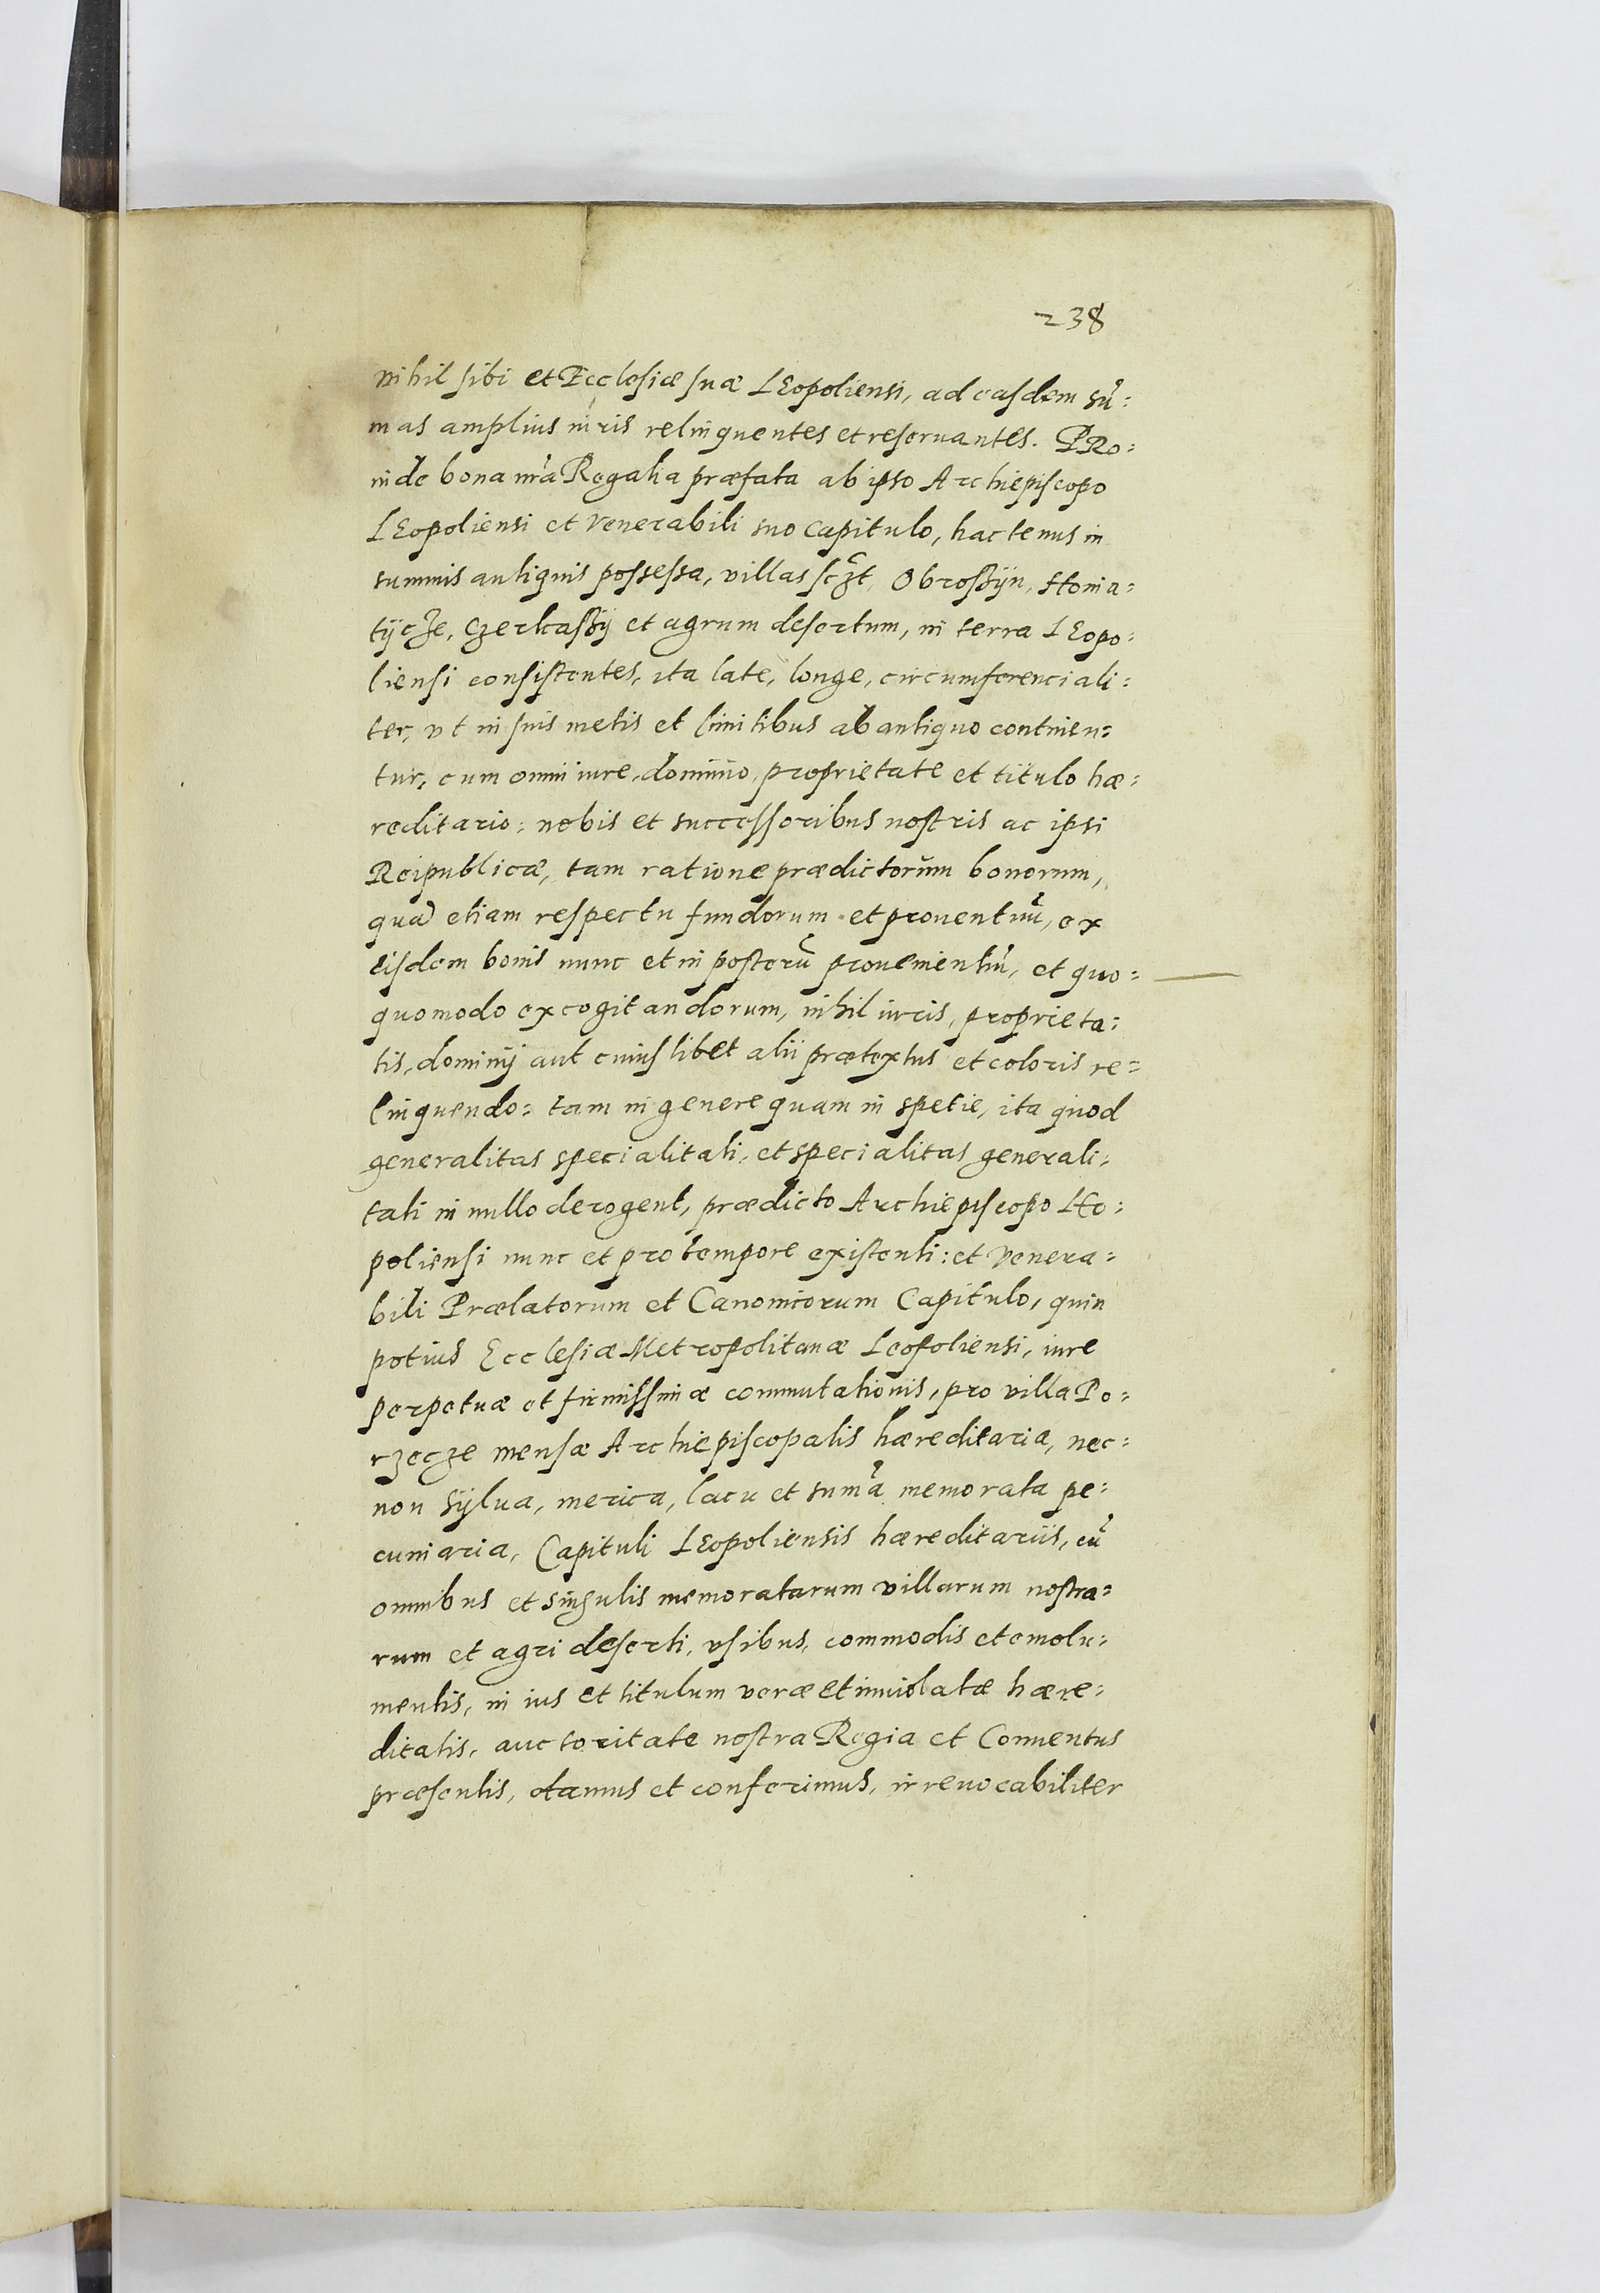 238
nihil sibi et Ecclesiæ suæ LEopoliensi, ad easdem sũ=
mas amplius iuris relinquentes et reseruantes. PRo=
inde bona nr̃a Regalia præfata ab ipso Archiepiscopo
LEopoliensi et Venerabili suo Capitulo, hactenus in
summis antiquis possessa, villas sczt, Obroszÿn, Honia=
tÿcze, Czerkaszÿ et agrum desertum, in terra LEopo=
liensi consistentes, ita late, longe, circumferenciali=
ter, vt in suis metis et limitibus ab antiquo continen=
tur, cum omni iure, dominio, proprietate et titulo hæ=
reditario: nobis et successoribus nostris ac ipsi
Reipublicæ, tam ratione prædictorum bonorum,
quã etiam respectu fundorum et prouentuũ, ex
eisdem bonis nunc et in posterũ prouenientiũ, et quo=
quomodo excogitandorum, nihil iuris, proprieta=
tis, dominÿ aut cuiuslibet alii prætextus et coloris re=
linquendo: tam in genere quam in spetie, ita quod
generalitas specialitati, et specialitas generali=
tati in nullo derogent, prædicto Archiepiscopo LEo=
poliensi nunc et pro tempore existenti: et Venera=
bili Prælatorum et Canonicorum Capitulo, quin
potius Ecclesiæ Metropolitanæ Leopoliensi, iure
perpetuæ et firmissimæ commutationis, pro villa Po=
rzecze mensæ Archiepiscopalis hæreditaria, nec=
non sÿlua, merica, lacu et sum̃a memorata pe=
cuniaria, Capituli LEopoliensis hæreditariis, cũ
omnibus et singulis memoratarum villarum nostra=
rum et agri deserti, vsibus, commodis et emolu=
mentis, in ius et titulum veræ et inuiolatæ hære=
ditatis, auctoritate nostra Regia et Conuentus
præsentis, damus et conferimus, irreuocabiliter